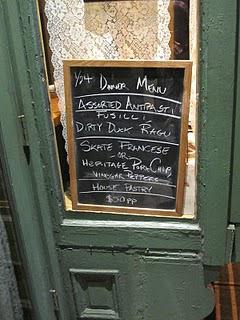 1/24 Dinner Menu
Assorted Antipasti
Fusilli
Dirty Duck Ragu
Skate Francese
or
Heritage Pork Chop,
Vinegar Peppers
House Pastry
$50pp